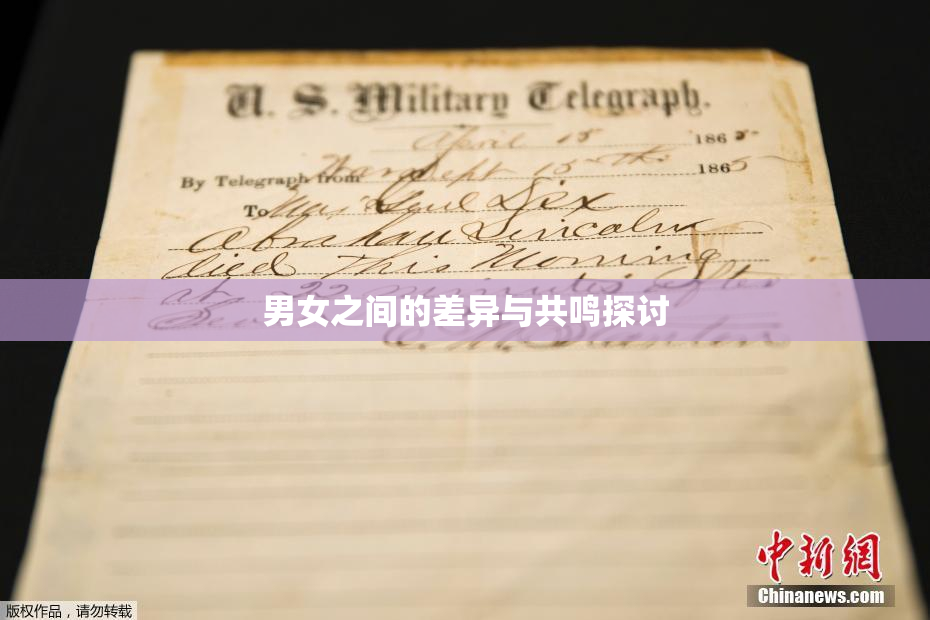 U. S. Military Telegraph.
April 15 1865
By Telegraph from War Dept 15th 1865
To Maj Genl Dix
Abraham Lincoln
died This Morning
at 22 minutes after
男女之间的差异与共鸣探讨
E. M. Stanton
中新网
Chinanews.com
版权作品,请勿转载